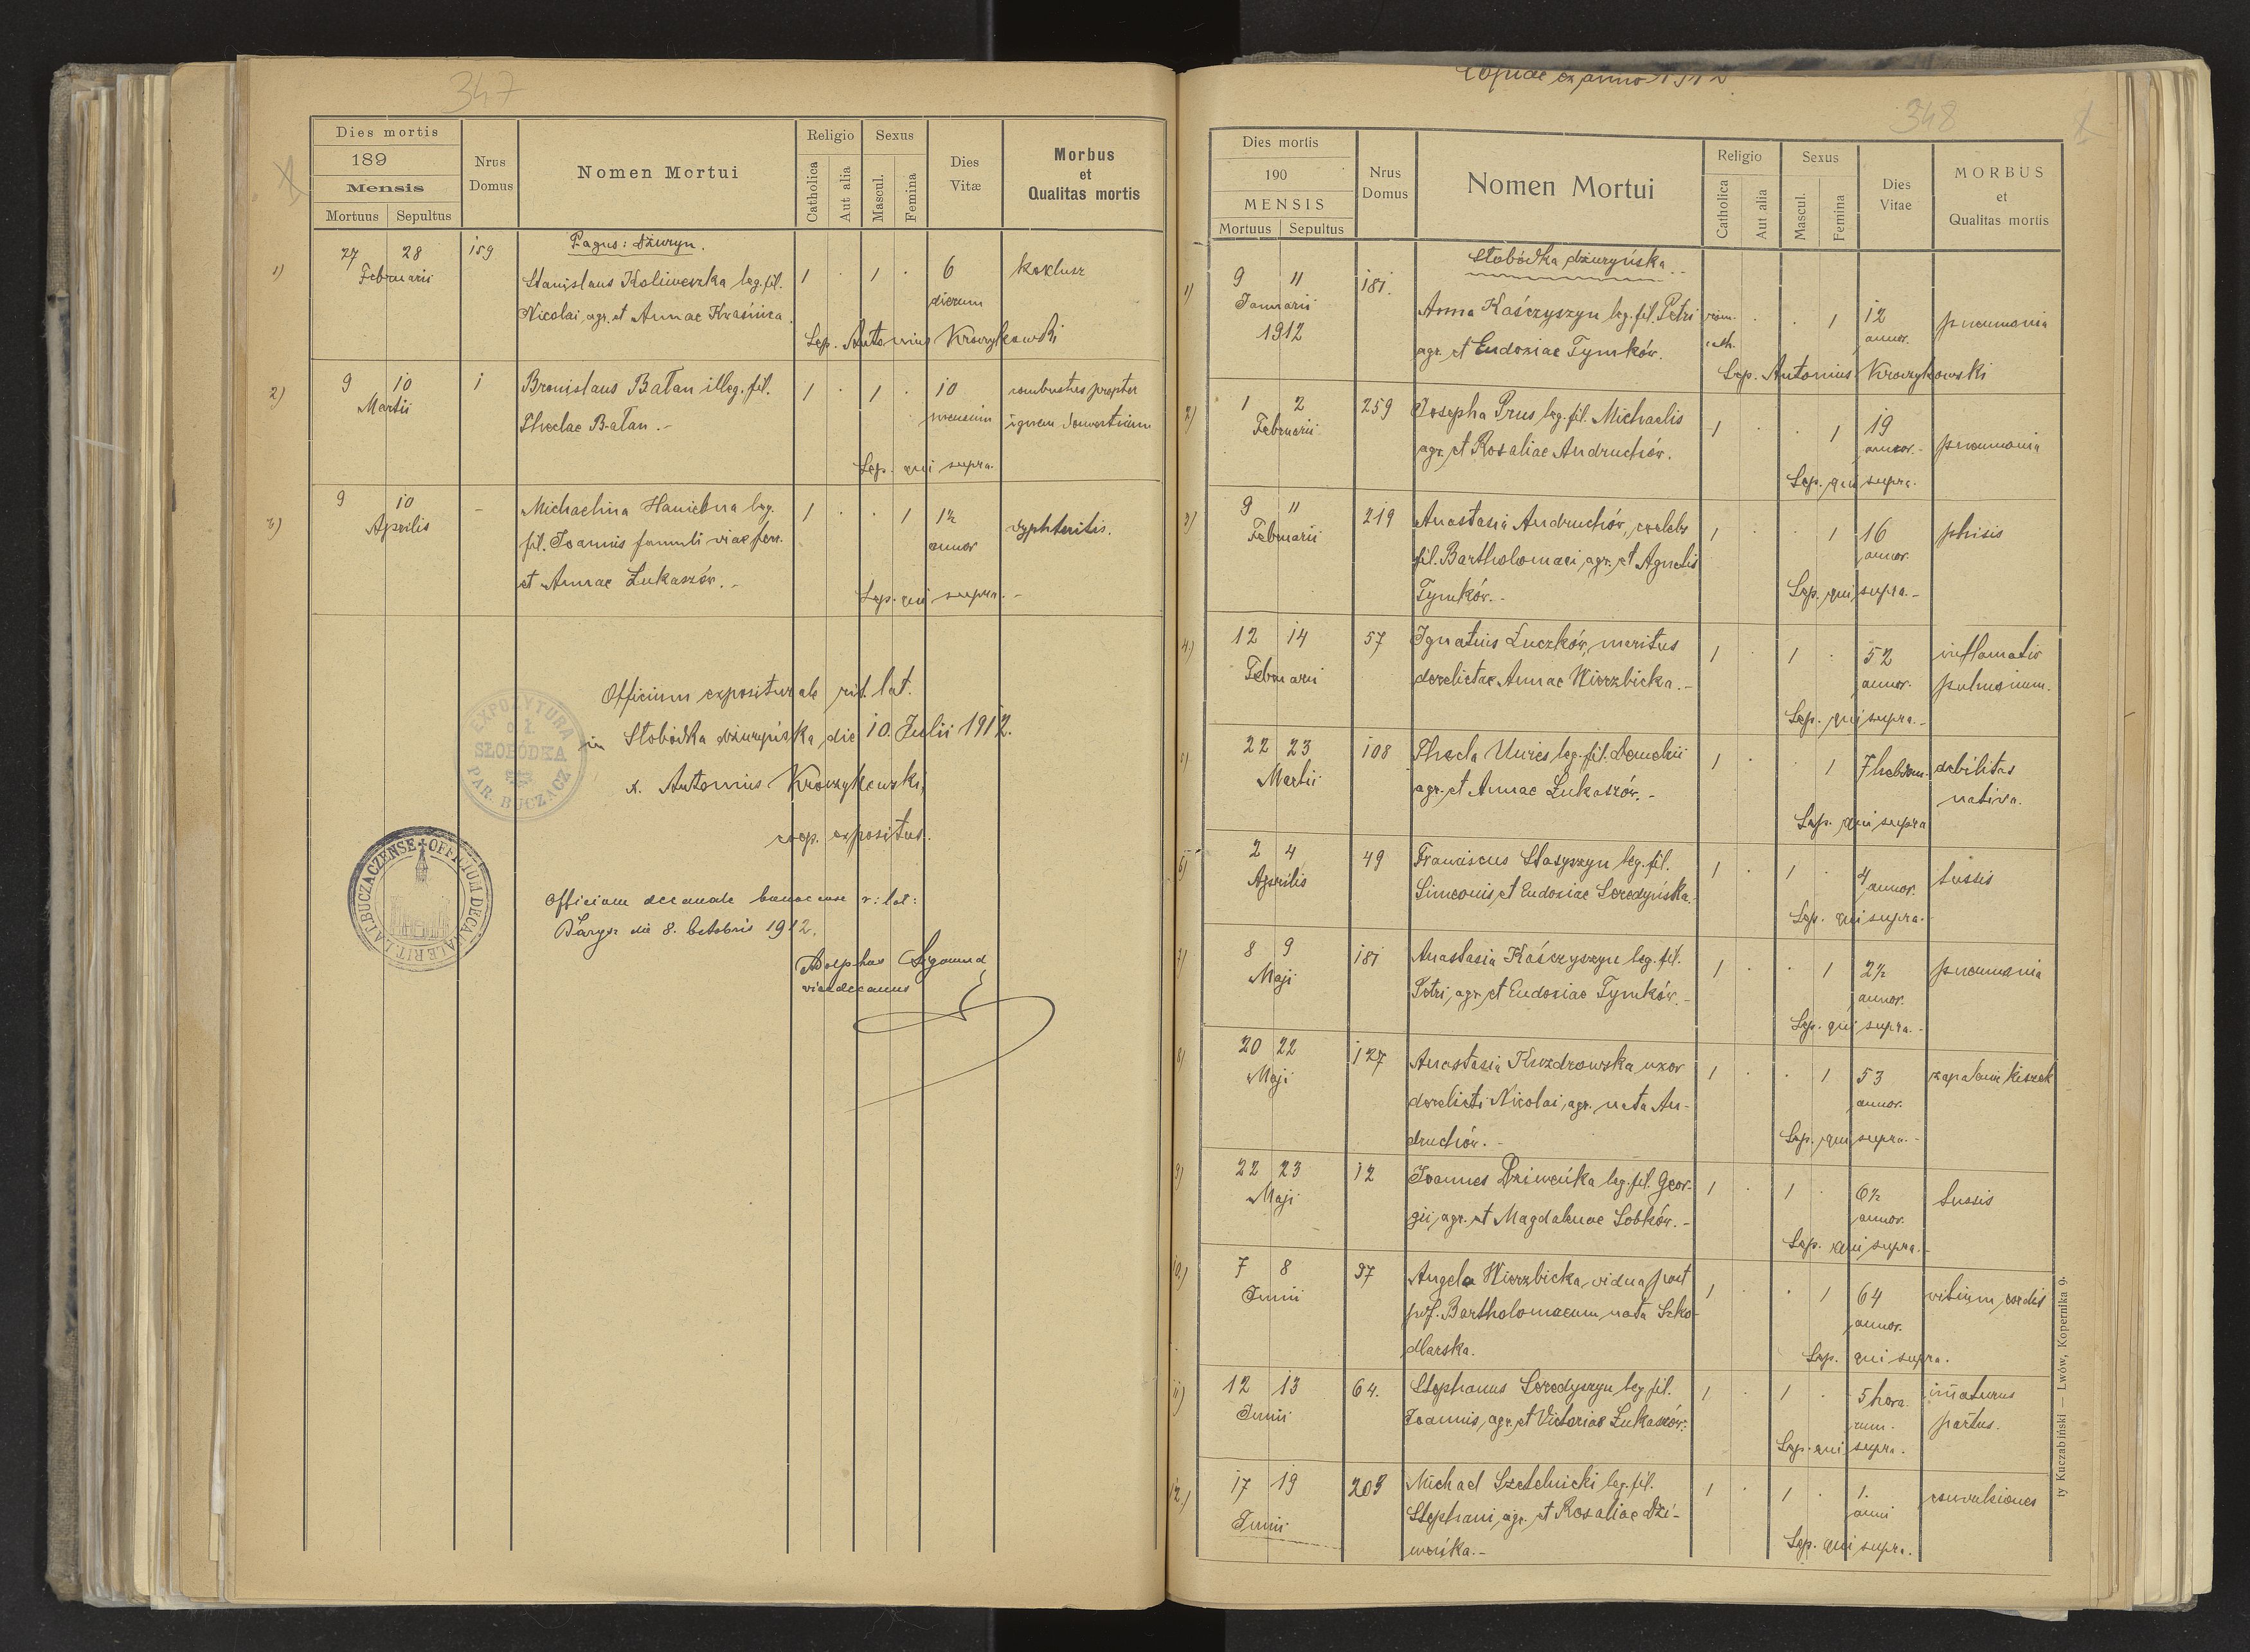 347
Dies mortis
189
Mensis
Mortuus Sepultus
Nrus
Domus
Nomen Mortui
Religio
Catholica
Aut alia
Sexus
Mascul.
Femina
Dies
Vitæ
Morbus
et
Qualitas mortis
Pagus: Dżuryn.
1) 27 28 159
Februarii
Stanislaus Koliweszka leg. fil.
Nicolai, agr. et Annae Kwaśnica.
1 . 1 . 6
dierum
koklusz
Sep. Antonius Krowykowski
2) 9 10 1
Martii
Bronislaus Bałan illeg. fil.
Theclae Bałan.-
1 . 1 . 10
mensium
combustus propter
ignem domesticum
Sep. qui supra.
3) 9 10 -
Aprilis
Michaelina leg.
fil. Joannis famuli viae ferr.
et Annae Łukaszów.-
1 . . 1 1½
annor
dyphteritis.
Sep. qui supra.-
Officium expositurale rit. lat.
in Słobódka dżuryńska, die 10. Julii 1912.
X. Antonius Krowykowski,
coop. expositus.
EXPOZYTURA
o. ł.
SŁOBÓDKA
PAR. BUCZACZ
OFFICIUM DECANALE RIT. LAT. BUCZACZENSE
Officium decanale r: lat:
die 8. Octobris 1912.
Adolphus Sigmund
vicedecanus
Copiae ex anno 1912.
348
Dies mortis
190
MENSIS
Mortuus Sepultus
Nrus
Domus
Nomen Mortui
Religio
Catholica
Aut alia
Sexus
Mascul.
Femina
Dies
Vitae
MORBUS
et
Qualitas mortis
Słobódka dżuryńska.-
1) 9 11 181.
Januarii
1912
Anna Kaśczyszyn leg. fil. Petri
agr. et Eudoxiae Tymków.
rom.
cath.
. . 1 12
annor.
pneumonia
Sep. Antonius Krowykowski
2) 1 2 259
Februarii
Josepha Prus leg. fil. Michaelis
agr. et Rosaliae Andruchów.
1 . . 1 19
annor.-
pneumonia
Sep. qui supra.
3) 9 11 219
Februarii
Anastasia Andruchów, coelebs
fil. Bartholomaei, agr. et Agnetis
Tymków.-
1 . . 1 16
annor.
phisis
Sep. qui supra.-
4.) 12 14 57
Februarii
Ignatius Łuczków, maritus
derelictae Annae Wierzbicka.-
1 . 1 . 52
annor.
inflamatio
pulmonum.
Sep. qui supra.-
5) 22 23 108
Martii
Thecla leg. fil.
agr. et Annae Łukaszów.-
1 . . 1 7 hebdom.
debilitas
nativa.
Sep. qui supra
6) 2 4 49
Aprilis
Franciscus Stasyszyn leg. fil.
Simeonis, et Eudoxiae Seredyńska.
1 . 1 . 4 annor.
tussis
Sep. qui supra.-
7) 8 9 181
Maji
Anastasia Kaśczyszyn leg. fil.
Petri, agr. et Eudoxiae Tymków.-
1 . . 1 2½
annor.
pneumonia
Sep. qui supra.-
8) 20 22 127
Maji
Anastasia uxor
derelicti Nicolai, agr. nata An-
druchów.-
1 . . 1 53
annor.
zapalenie kiszek
Sep. qui supra.-
9) 22 23 12
Maji
Joannes Dziweńka leg. fil. Geor-
gii, agr. et Magdalenae Sobków.-
1 . 1 . 6½
annor.
tussis
Sep. qui supra.-
10.) 7 8 97
Junii
Angela Wierzbicka, vidua post
pof. Bartholomaeum, nata Szko-
dlarska.
1 . . 1 64
annor.
vitium cordis
Sep. qui supra.
11) 12 13 64.
Junii
Stephanus Seredyszyn leg. fil.
Joannis, agr. et Victoriae Łukaszów.
1 . 1 . 5 hora-
rum.-
immaturus
partus.
Sep. qui supra.
12.) 17 19 209
Junii
Michael Szetelnicki leg. fil.
Stephani, agr. et Rosaliae Dzi-
weńka.-
1 . 1 . 1.
anni
convulsiones
Sep. qui supra.
ty Kuczabiński — Lwów, Kopernika 9.